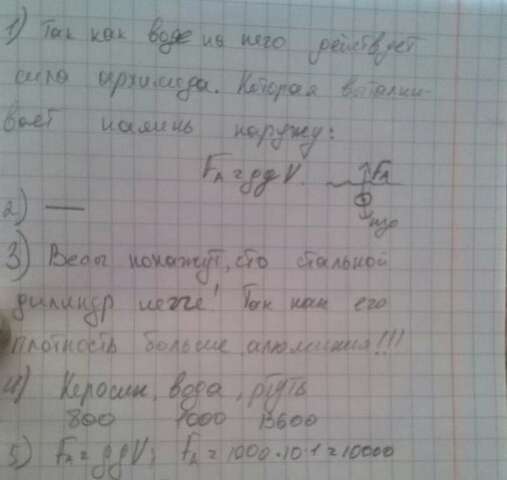 1) Так как воде на него действует
сила архимеда. Которая выталки-
вает камень наружу:
Fₐ = ρgV Fₐ
mg
2) —
3) Весы покажут, что стальной
цилиндр легче! Так как его
плотность больше алюминия!!!
4) Керосин, вода, ртуть
800 1000 13600
5) Fₐ = ρgV; Fₐ = 1000·10·1 = 10000